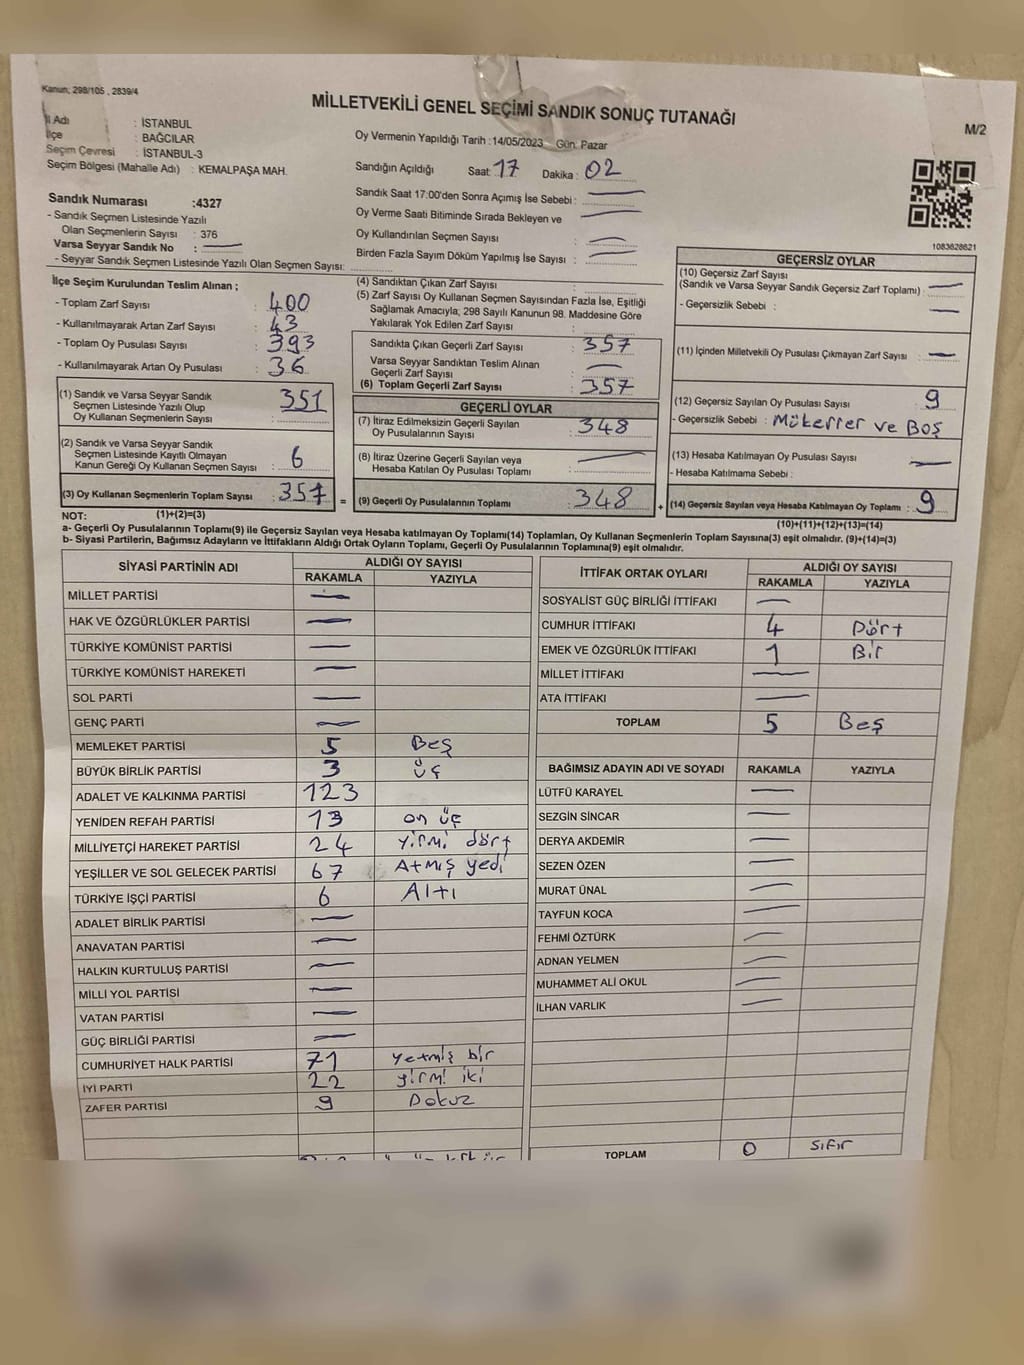 Kanun, 298/105 , 2839/4
MİLLETVEKİLİ GENEL SEÇİMİ SANDIK SONUÇ TUTANAĞI
M/2
İl Adı : İSTANBUL
İlçe : BAĞCILAR
Seçim Çevresi : İSTANBUL-3
Seçim Bölgesi (Mahalle Adı) : KEMALPAŞA MAH.
Sandık Numarası :4327
- Sandık Seçmen Listesinde Yazılı
Olan Seçmenlerin Sayısı : 376
Varsa Seyyar Sandık No : —
- Seyyar Sandık Seçmen Listesinde Yazılı Olan Seçmen Sayısı:
Oy Vermenin Yapıldığı Tarih :14/05/2023 Gün: Pazar
Sandığın Açıldığı Saat: 17 Dakika : 02
Sandık Saat 17:00'den Sonra Açılmış İse Sebebi : —
Oy Verme Saati Bitiminde Sırada Bekleyen ve —
Oy Kullandırılan Seçmen Sayısı : —
Birden Fazla Sayım Döküm Yapılmış İse Sayısı : —
1083628621
İlçe Seçim Kurulundan Teslim Alınan ;
- Toplam Zarf Sayısı : 400
- Kullanılmayarak Artan Zarf Sayısı : 43
- Toplam Oy Pusulası Sayısı : 393
- Kullanılmayarak Artan Oy Pusulası : 36
(1) Sandık ve Varsa Seyyar Sandık
Seçmen Listesinde Yazılı Olup
Oy Kullanan Seçmenlerin Sayısı : 351
(2) Sandık ve Varsa Seyyar Sandık
Seçmen Listesinde Kayıtlı Olmayan
Kanun Gereği Oy Kullanan Seçmen Sayısı : 6
(3) Oy Kullanan Seçmenlerin Toplam Sayısı : 357 =
(1)+(2)=(3)
(4) Sandıktan Çıkan Zarf Sayısı :
(5) Zarf Sayısı Oy Kullanan Seçmen Sayısından Fazla İse, Eşitliği
Sağlamak Amacıyla; 298 Sayılı Kanunun 98. Maddesine Göre
Yakılarak Yok Edilen Zarf Sayısı :
Sandıkta Çıkan Geçerli Zarf Sayısı : 357
Varsa Seyyar Sandıktan Teslim Alınan
Geçerli Zarf Sayısı : —
(6) Toplam Geçerli Zarf Sayısı : 357
GEÇERLİ OYLAR
(7) İtiraz Edilmeksizin Geçerli Sayılan
Oy Pusulalarının Sayısı : 348
(8) İtiraz Üzerine Geçerli Sayılan veya
Hesaba Katılan Oy Pusulası Toplamı : —
(9) Geçerli Oy Pusulalarının Toplamı : 348 +
GEÇERSİZ OYLAR
(10) Geçersiz Zarf Sayısı
(Sandık ve Varsa Seyyar Sandık Geçersiz Zarf Toplamı) : —
- Geçersizlik Sebebi : —
(11) İçinden Milletvekili Oy Pusulası Çıkmayan Zarf Sayısı : —
(12) Geçersiz Sayılan Oy Pusulası Sayısı : 9
- Geçersizlik Sebebi : Mükerrer ve Boş
(13) Hesaba Katılmayan Oy Pusulası Sayısı : —
- Hesaba Katılmama Sebebi :
(14) Geçersiz Sayılan veya Hesaba Katılmayan Oy Toplamı : 9
(10)+(11)+(12)+(13)=(14)
NOT:
a- Geçerli Oy Pusulalarının Toplamı(9) ile Geçersiz Sayılan veya Hesaba katılmayan Oy Toplamı(14) Toplamları, Oy Kullanan Seçmenlerin Toplam Sayısına(3) eşit olmalıdır. (9)+(14)=(3)
b- Siyasi Partilerin, Bağımsız Adayların ve İttifakların Aldığı Ortak Oyların Toplamı, Geçerli Oy Pusulalarının Toplamına(9) eşit olmalıdır.
SİYASİ PARTİNİN ADI ALDIĞI OY SAYISI
RAKAMLA YAZIYLA
MİLLET PARTİSİ —
HAK VE ÖZGÜRLÜKLER PARTİSİ —
TÜRKİYE KOMÜNİST PARTİSİ —
TÜRKİYE KOMÜNİST HAREKETİ —
SOL PARTİ —
GENÇ PARTİ —
MEMLEKET PARTİSİ 5 Beş
BÜYÜK BİRLİK PARTİSİ 3 üç
ADALET VE KALKINMA PARTİSİ 123
YENİDEN REFAH PARTİSİ 13 on üç
MİLLİYETÇİ HAREKET PARTİSİ 24 yirmi dört
YEŞİLLER VE SOL GELECEK PARTİSİ 67 Atmış yedi
TÜRKİYE İŞÇİ PARTİSİ 6 Altı
ADALET BİRLİK PARTİSİ —
ANAVATAN PARTİSİ —
HALKIN KURTULUŞ PARTİSİ —
MİLLİ YOL PARTİSİ —
VATAN PARTİSİ —
GÜÇ BİRLİĞİ PARTİSİ —
CUMHURİYET HALK PARTİSİ 71 yetmiş bir
İYİ PARTİ 22 yirmi iki
ZAFER PARTİSİ 9 Dokuz
İTTİFAK ORTAK OYLARI ALDIĞI OY SAYISI
RAKAMLA YAZIYLA
SOSYALİST GÜÇ BİRLİĞİ İTTİFAKI —
CUMHUR İTTİFAKI 4 Dört
EMEK VE ÖZGÜRLÜK İTTİFAKI 1 Bir
MİLLET İTTİFAKI —
ATA İTTİFAKI —
TOPLAM 5 Beş
BAĞIMSIZ ADAYIN ADI VE SOYADI RAKAMLA YAZIYLA
LÜTFÜ KARAYEL —
SEZGİN SİNCAR —
DERYA AKDEMİR —
SEZEN ÖZEN —
MURAT ÜNAL —
TAYFUN KOCA —
FEHMİ ÖZTÜRK —
ADNAN YELMEN —
MUHAMMET ALİ OKUL —
İLHAN VARLIK —
TOPLAM 0 sıfır